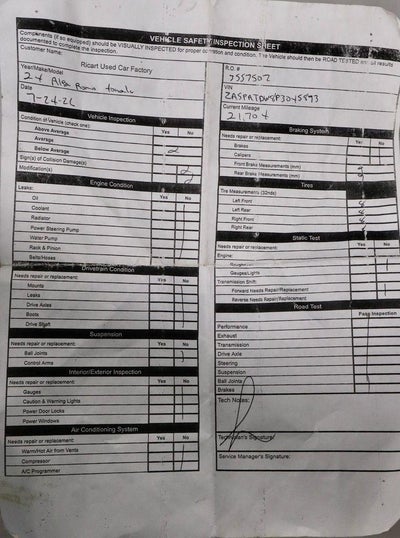 VEHICLE SAFETY INSPECTION SHEET
Components (if so equipped) should be VISUALLY INSPECTED for proper operation and condition. The Vehicle should then be ROAD TESTED and all results
documented to complete the inspection.
Customer Name:
Ricart Used Car Factory
Year/Make/Model
24 Alfa Romeo tonale
Date
Vehicle Inspection
Condition of Vehicle (check one): Yes No
Above Average
Average
Below Average
Sign(s) of Collision Damage(s)
Modification(s)
Engine Condition
Leaks: Yes No
Oil
Coolant
Radiator
Power Steering Pump
Water Pump
Rack & Pinion
Belts/Hoses
Drivetrain Condition
Needs repair or replacement: Yes No
Mounts
Leaks
Drive Axles
Boots
Drive Shaft
Suspension
Needs repair or replacement: Yes No
Ball Joints
Control Arms
Interior/Exterior Inspection
Needs repair or replacement: Yes No
Gauges
Caution & Warning Lights
Power Door Locks
Power Windows
Air Conditioning System
Needs repair or replacement: Yes No
Warm/Hot Air from Vents
Compressor
A/C Programmer
R.O.#
7557507
VIN
Current Mileage
21,704
Braking System
Needs repair or replacement: Yes No
Brakes
Calipers
Front Brake Measurements (mm)
Rear Brake Measurements (mm)
Tires
Tire Measurements (32nds)
Left Front 8
Left Rear 8
Right Front 8
Right Rear
Static Test
Needs repair or replacement: Yes No
Engine:
Gauges/Lights
Transmission Shift:
Forward Needs Repair/Replacement
Reverse Needs Repair/Replacement
Road Test
Pass Inspection
Performance
Exhaust
Transmission
Drive Axle
Steering
Suspension
Ball Joints
Brakes
Tech Notes:
Technician's Signature:
Service Manager's Signature: